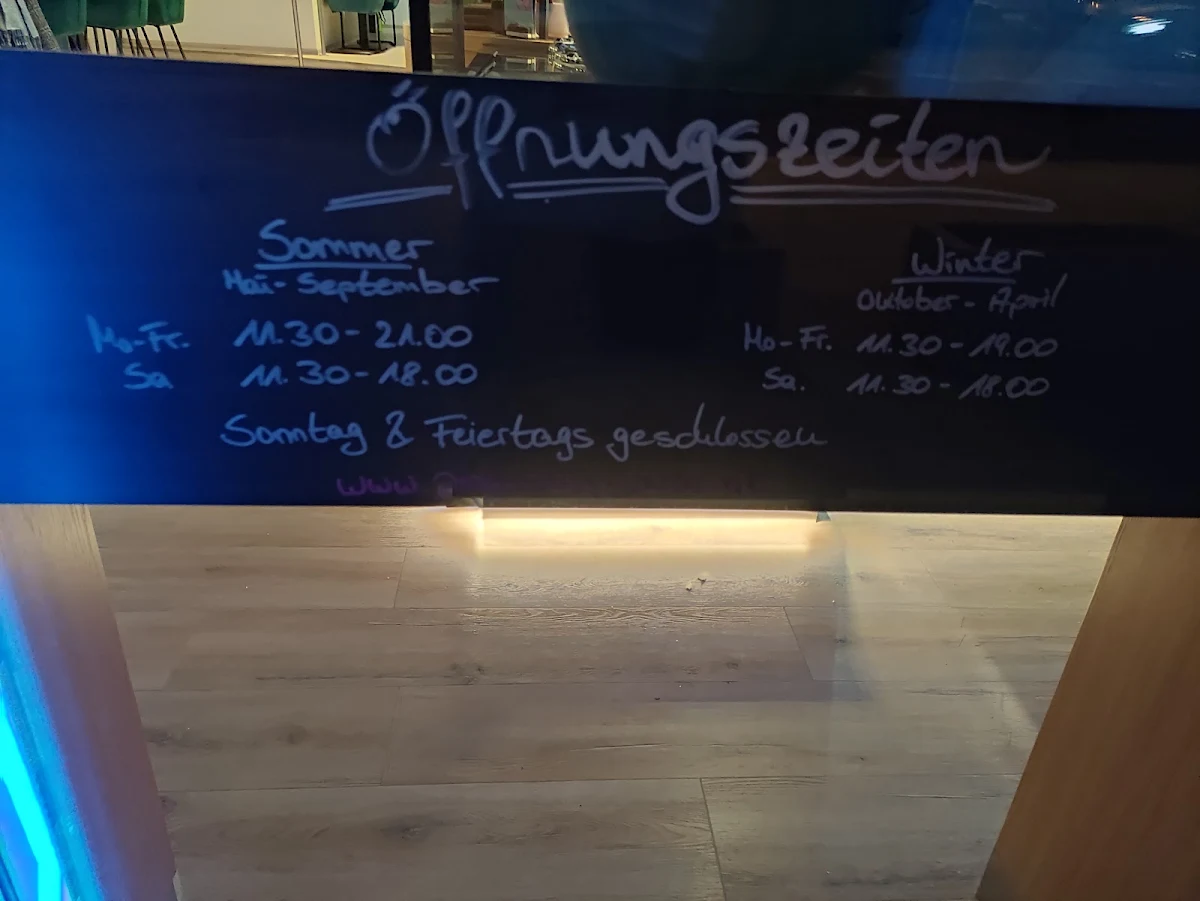 Öffnungszeiten
Sommer
Mai - September
Mo-Fr. 11.30 - 21.00
Sa 11.30 - 18.00
Winter
Oktober - April
Mo-Fr. 11.30 - 19.00
Sa. 11.30 - 18.00
Sonntag & Feiertags geschlossen
www